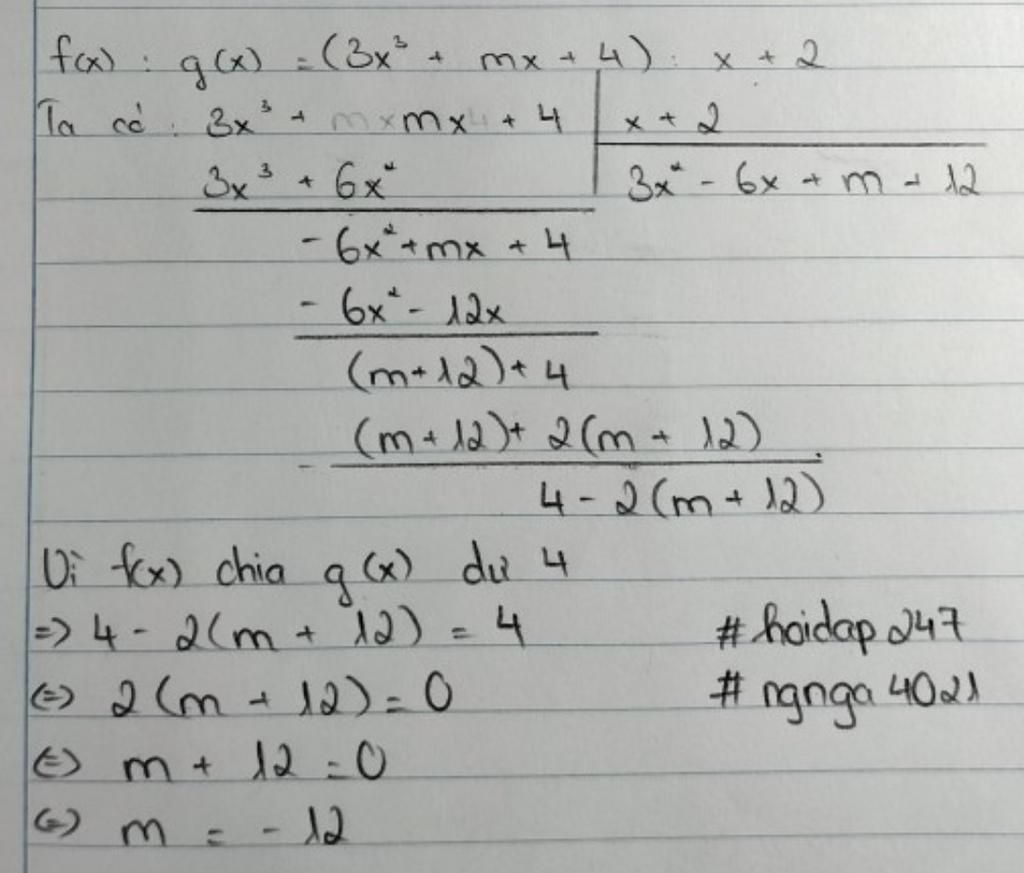 f(x) : g(x) = (3x³ + mx + 4) : x + 2
Ta có : 3x³ + mx + 4 | x + 2
3x³ + 6x² | 3x² - 6x + m + 12
- 6x² + mx + 4
- 6x² - 12x
(m+12) + 4
(m+12) + 2(m + 12)
4 - 2(m + 12)
Vì f(x) chia g(x) dư 4
=> 4 - 2(m + 12) = 4
#hoidap247
<=> 2(m + 12) = 0
#ngnga4021
<=> m + 12 = 0
<=> m = - 12